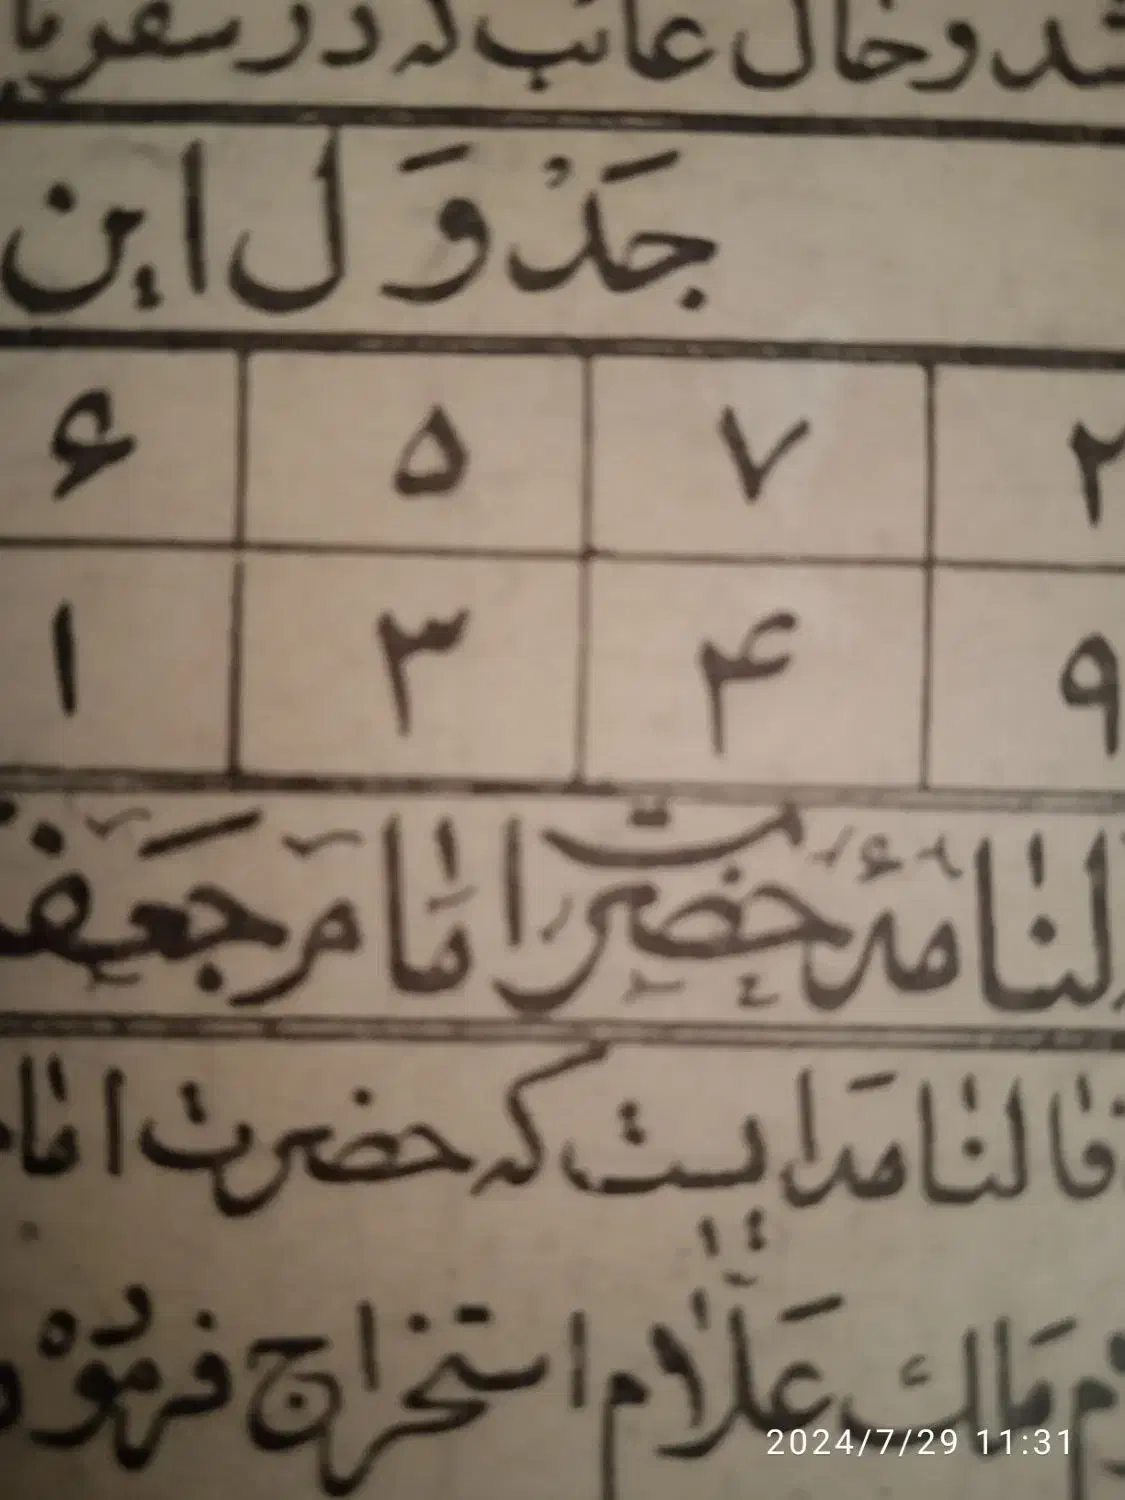 شد و حال غائب که در سفر یا
جَدْوَل این
۲ ۷ ۵ ۶
۹ ۴ ۳ ۱
لنامهٔ حضرت امام جَعف
فالنامه ایست که حضرت امام
مَلک عَلّام استخراج فرموده
2024/7/29 11:31